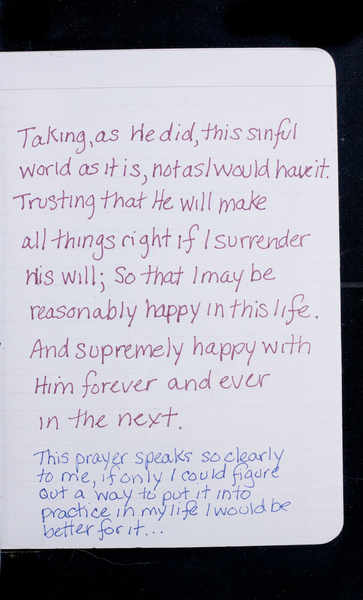 Taking, as He did, this sinful
world as it is, not as I would have it.
Trusting that He will make
all things right if I surrender
his will; So that I may be
reasonably happy in this life.
And supremely happy with
Him forever and ever
in the next.
This prayer speaks so clearly
to me, if only I could figure
out a way to put it into
practice in my life I would be
better for it...